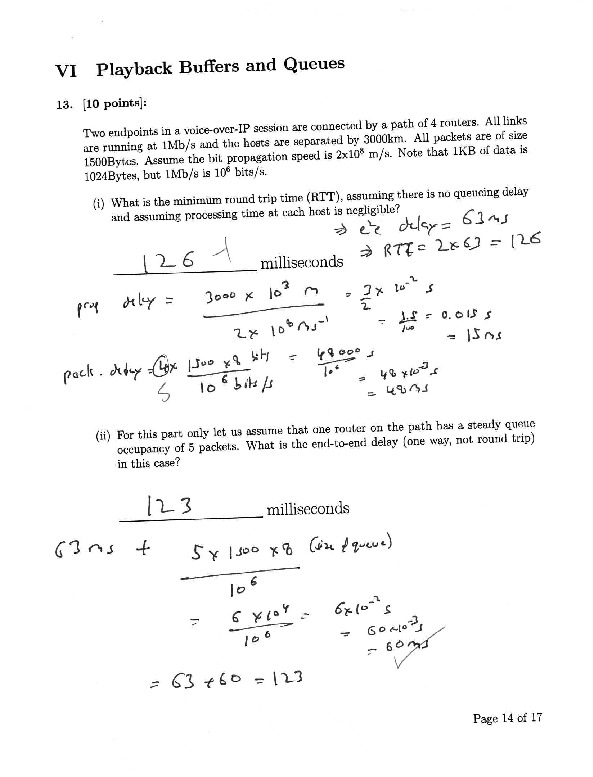 VI Playback Buffers and Queues
13. [10 points]:
Two endpoints in a voice-over-IP session are connected by a path of 4 routers. All links
are running at 1Mb/s and the hosts are separated by 3000km. All packets are of size
1500Bytes. Assume the bit propagation speed is 2x10⁸ m/s. Note that 1KB of data is
1024Bytes, but 1Mb/s is 10⁶ bits/s.
(i) What is the minimum round trip time (RTT), assuming there is no queueing delay
and assuming processing time at each host is negligible?
⇒ e2e delay = 63 ms
⇒ RTT = 2x63 = 126
126 milliseconds
prop delay = 3000 x 10³ m / 2x 10⁸ ms⁻¹ = 3/2 x 10⁻² s
= 1.5/100 = 0.015 s
= 15 ms
pack. delay = 4x 1500 x8 bits / 10⁶ bits/s = 48000 / 10⁶ s
5
= 48 x10⁻³ s
= 48 ms
(ii) For this part only let us assume that one router on the path has a steady queue
occupancy of 5 packets. What is the end-to-end delay (one way, not round trip)
in this case?
123 milliseconds
63 ms + 5 x 1500 x 8 (size of queue) / 10⁶
= 6 x 10⁴ / 10⁶ = 6x10⁻² s
= 60x10⁻³ s
= 60 ms
= 63 + 60 = 123
Page 14 of 17